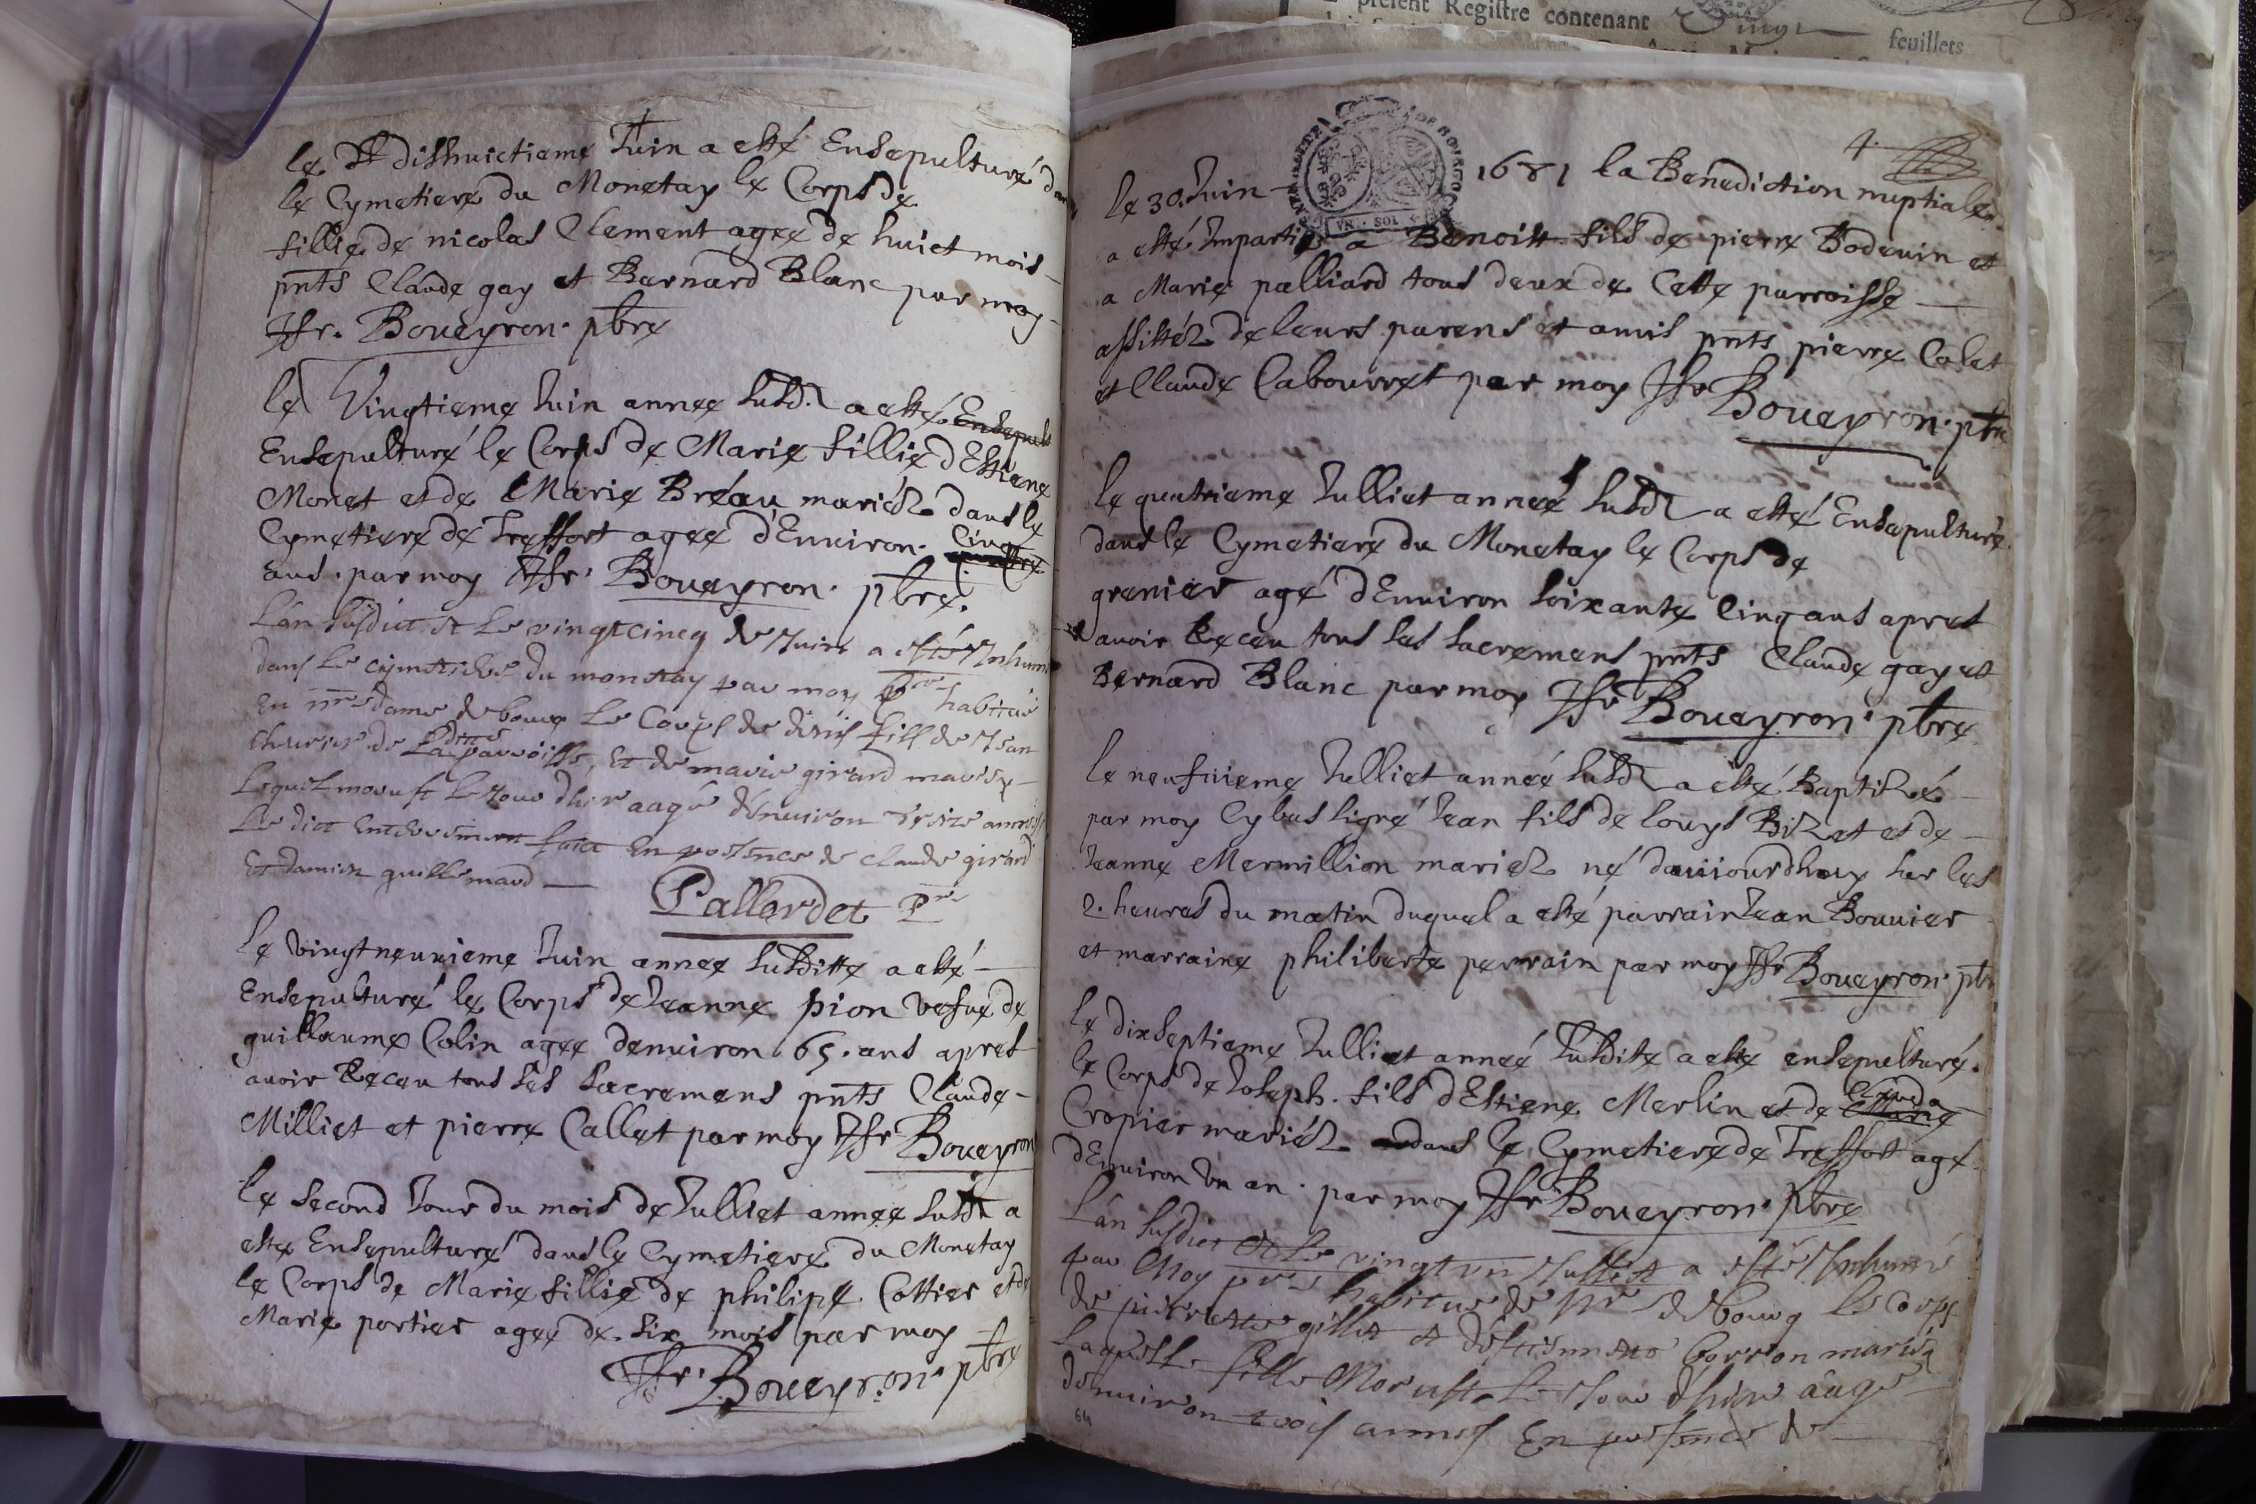 le dishuictieme Juin a esté Ensepulturé dans
le Cymetiere du Monetay le Corps de
fillie de nicolas Clement agee de huict mois
pnts Claude gay et Barnard Blanc par moy
Boueyron. pbre
le Vingtieme Juin annee susd. a esté Ensepult
Ensepulturé le Corps de Marie fillie d'Estiene
Monet et de Marie Bréau mariéz dans le
Cymetiere de Treffort agee d'Enuiron. Cinq
ans. par moy Boueyron. pbre.
L'an susdict et le vingtcincq de Juin a esté Inhumé
dans le cymetiere du monetay par moy pre habitué
En nre dame de bourg le Corps de denis fill de Jean
de Ladite parroisse, et de marie girard mariez
Lequel mourust le jour dhier aagé d'enuiron treize
Le dict Enterrement faict En presence de claude girard
Et damien guillemaud
Pallordet Pre
le vingt neuuieme Juin annee susditte a esté
Ensepulturé le Corps de Jeanne pion vefue de
guillaume Colin agee denuiron 65. ans apres
auoir Receu tous ses sacremens pnts Claude
Milliet et pierre Callet par moy Boueyron
le second Jour du mois de Julliet annee susd. a
este Ensepulturé dans le Cymetiere du Monetay
le Corps de Marie fillie de philipe. Cottier et de
Marie portier agee de. six mois par moy
Boueyron. pbre
present Registre contenant Vingt feuillets
4.
le 30. Juin 1681 la Benediction nuptiale
VN. SOL
a esté Impartie a Benoist fils de pierre Bodeuin et
a Marie palliard tous deux de Cette parroisse
assistéz de leurs parens et amis pnts pierre Colet
et Claude Cabourret par moy Boueyron. pbre
le quatrieme Julliet année susd. a esté Ensepulturé
dans le Cymetiere du Monetay le Corps de
grenier agé d'Enuiron soixante Cinq ans apres
auoir Receu tous ses sacremens pnts Claude gay et
Bernard Blanc par moy Boueyron. pbre
le neufuieme Julliet année susd. a esté Baptisé
par moy Cybas signé Jean fils de Louys Bizet et de
Jeanne Mermillion mariez né daujourdhuy sur les
2. heures du matin duquel a esté parrain Jean Bouuier
et marraine philiberte perrain par moy Boueyron. pbr
le dixseptieme Julliet année susdite a este ensepulturé.
le Corps de Joseph. fils d'Estiene Merlin et de Clauda
Cropier mariéz dans le Cymetiere de Treffort agé
d'Enuiron vn an. par moy Boueyron. pbre
L'an susdict et le vingtvn Julliet a esté Inhumé
par Moy pre habitué de nre de bourg le Corps
de pierrette gillet et d'estiennette borron mariéz
Laquelle fille Mourust le Jour d'hier aagé
denuiron trois annes En presence de
64